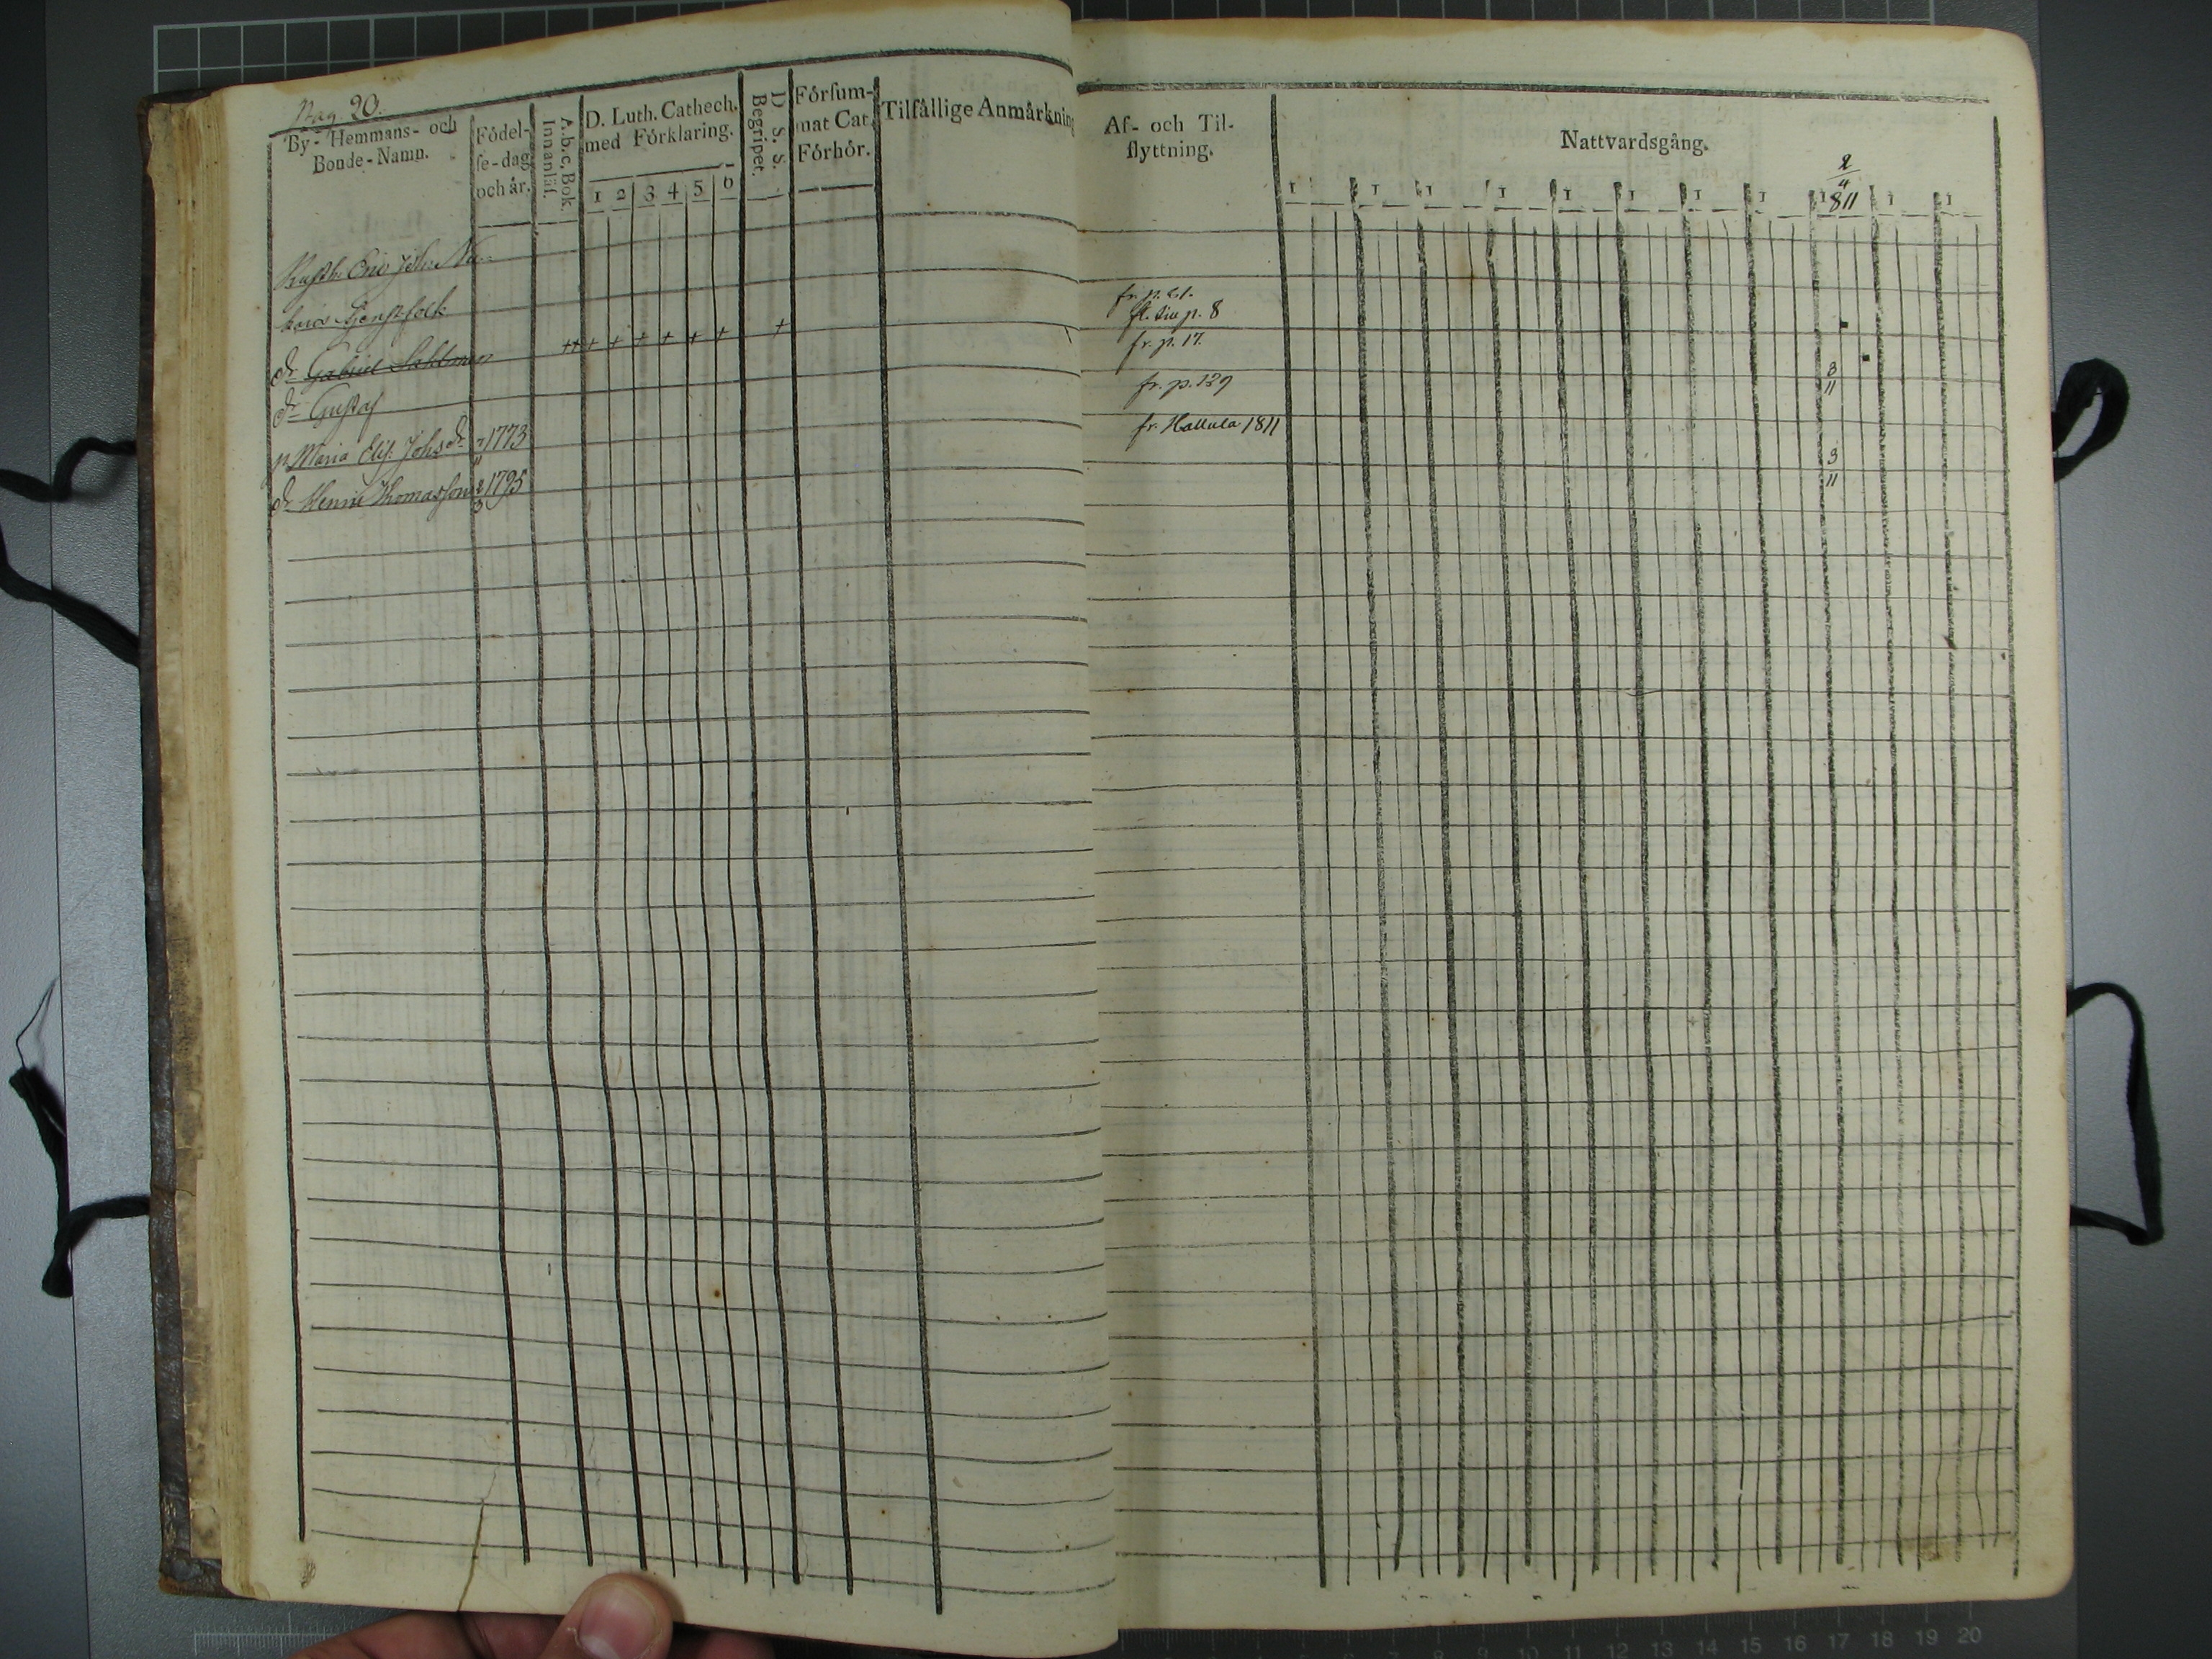 Pag 20.
By- Hemmans- och
Bonde-Namn.
Födel-
se-dag
och år.
A.b.c. Bok.
Innanläs.
D. Luth. Cathech.
med Förklaring.
1 2 3 4 5 6
D. S. S.
Begripet.
Försum-
mat Cat.
Förhör.
Tilfällige Anmärkning
Rusth. Eric Joh:
hans tjenstfolk
dr. Gabriel Sahlman
+++ + + + + + +
dr Gustaf
p. Maria Elis. Johs dr 1773
11
dr Henric Thomasson 2 1795
3
Af- och Til-
flyttning.
Nattvardsgång.
2
4
811
1 1 1 1 1 1 1 1 1 1 1
fr. p. 21.
p. 8
fr. p. 17.
fr. p. 129
3
11
fr. Hallula 1811
3
11
8 9 10 11 12 13 14 15 16 17 18 19 20